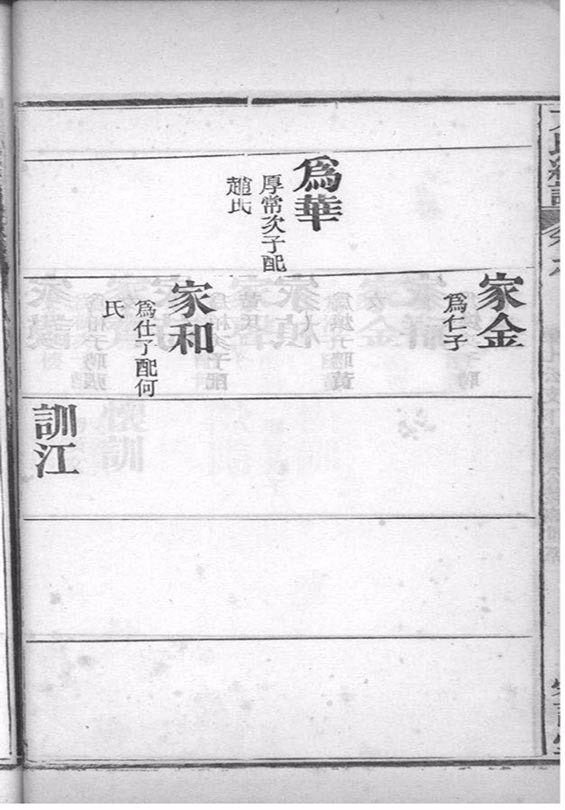 爲華
厚常次子配
趙氏
家金
爲仁子
家和
爲仕子配何
氏
訓江